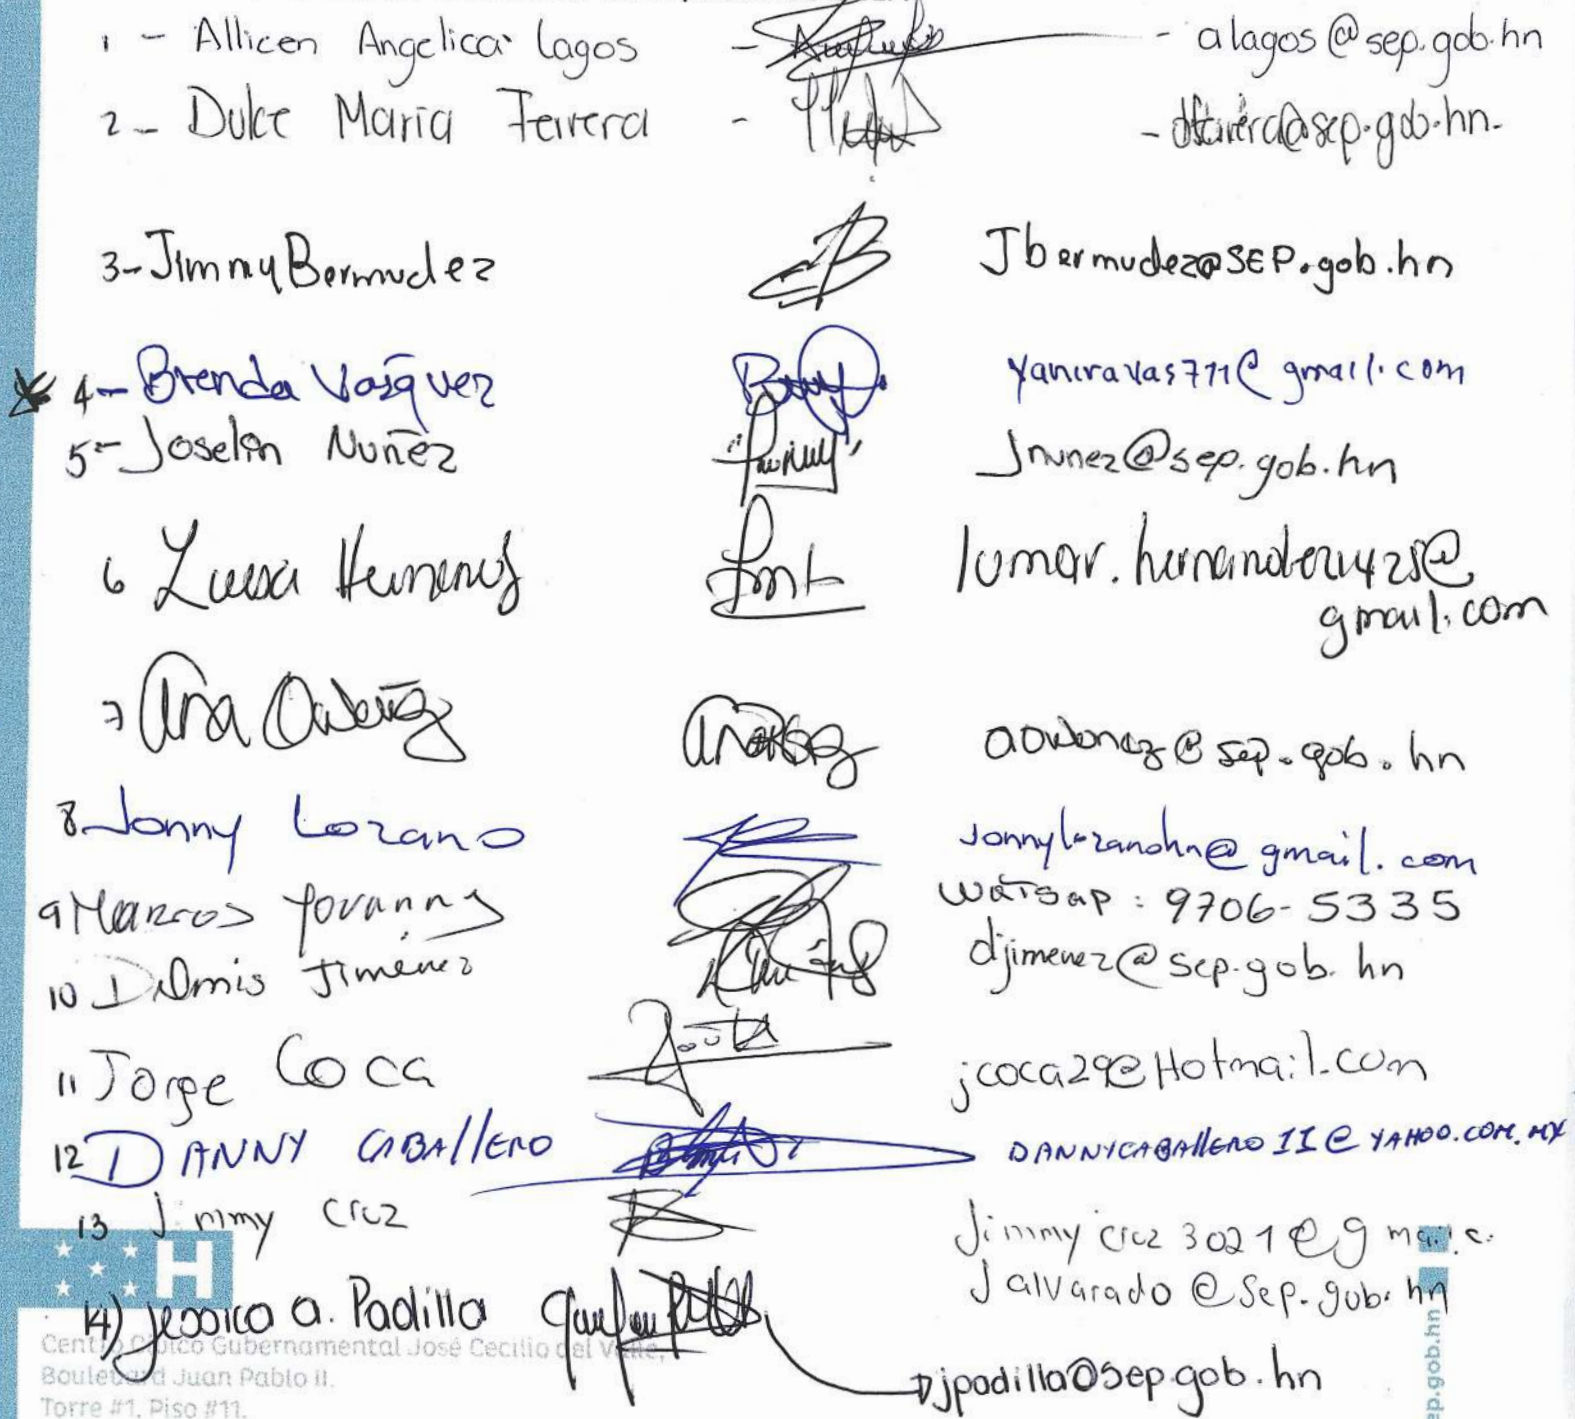 1 - Allicen Angelica Lagos - - alagos@sep.gob.hn
2 - Dulce Maria Ferrera - - dferrera@sep.gob.hn.
3 - Jimmy Bermudez Jbermudez@SEP.gob.hn
4 - Brenda Vasquez yaniravas711@gmail.com
5 - Joselin Nuñez Jnunez@sep.gob.hn
6 Luisa lumar.hernandez1425@
gmail.com
7 Ana Ordoñez aordonez@sep.gob.hn
8 - Jonny Lozano Jonnylozanohn@gmail.com
9 Marcos Yovanny watsap: 9706-5335
10 Jiménez djimenez@sep.gob.hn
11 Jorge Coca jcoca29@Hotmail.com
12 DANNY CABALLERO DANNYCABALLERO II@YAHOO.COM.MX
13 Jimmy Cruz Jimmycruz3021@gmail.c.
Jalvarado@Sep.gob.hn
H
14) Jessica a. Padilla
Centro Cívico Gubernamental José Cecilio del Valle,
jpadilla@sep.gob.hn
Boulevard Juan Pablo II.
Torre #1, Piso #11.
ep.gob.hn